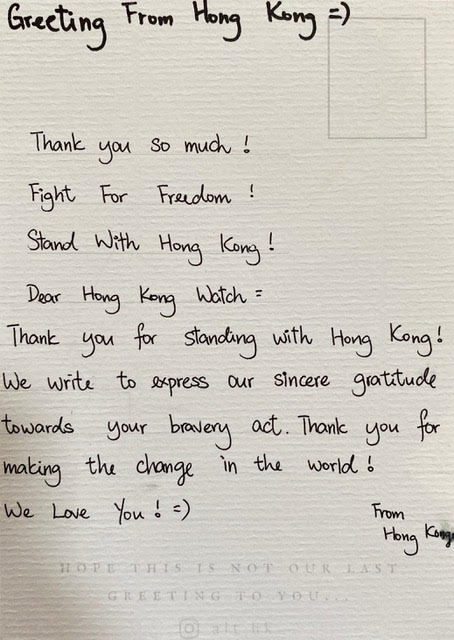 Greeting From Hong Kong =)
Thank you so much !
Fight For Freedom !
Stand With Hong Kong !
Dear Hong Kong Watch =
Thank you for standing with Hong Kong!
We write to express our sincere gratitude
towards your bravery act. Thank you for
making the change in the world !
We Love You ! =)
From
Hong Konger
HOPE THIS IS NOT OUR LAST
GREETING TO YOU...
alt.hk